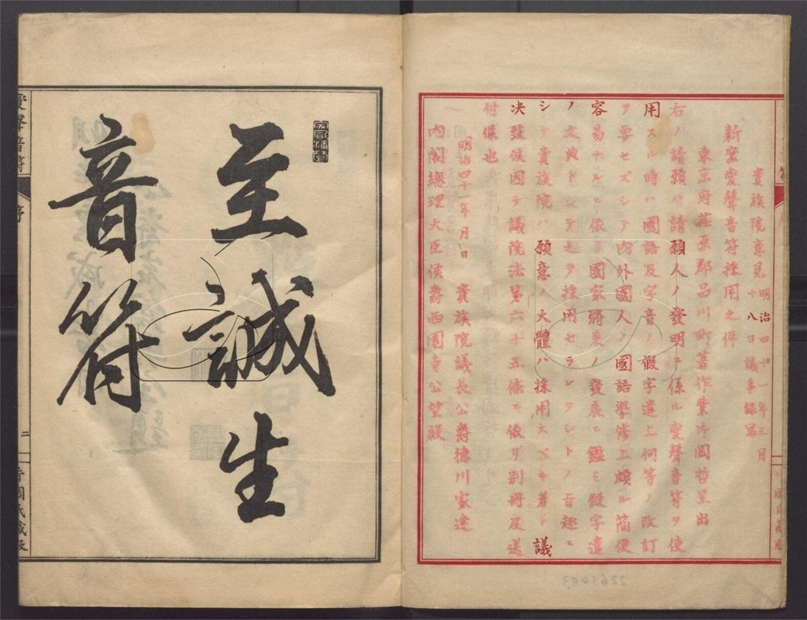 貴族院意見 明治四十一年三月
十八日議事録写
新案変聲音符採用之件
東京府荏原郡品川町著作業
呈出
右ノ請願ハ請願人ノ發明ニ係ル変聲音符ヲ使
用スル時ハ國語及字音ノ假字遣上何等ノ改訂
ヲ要セズシテ内外國人ノ國語學修上頗ル簡便
容易ナルニ依リ國家將來ノ發展ニ鑑ミ假字遣
ノ文典トシテ之ヲ採用セラレタシトノ旨趣ニ
シテ貴族院ハ願意ノ大體ハ採用スベキ者ト議
決致候因テ議院法第六十五條ニ依リ別冊及送
付候也
明治四十一年 月 日 貴族院議長公爵德川家達
内閣總理大臣侯爵西園寺公望殿
至誠生
音符
変聲音符
序
二